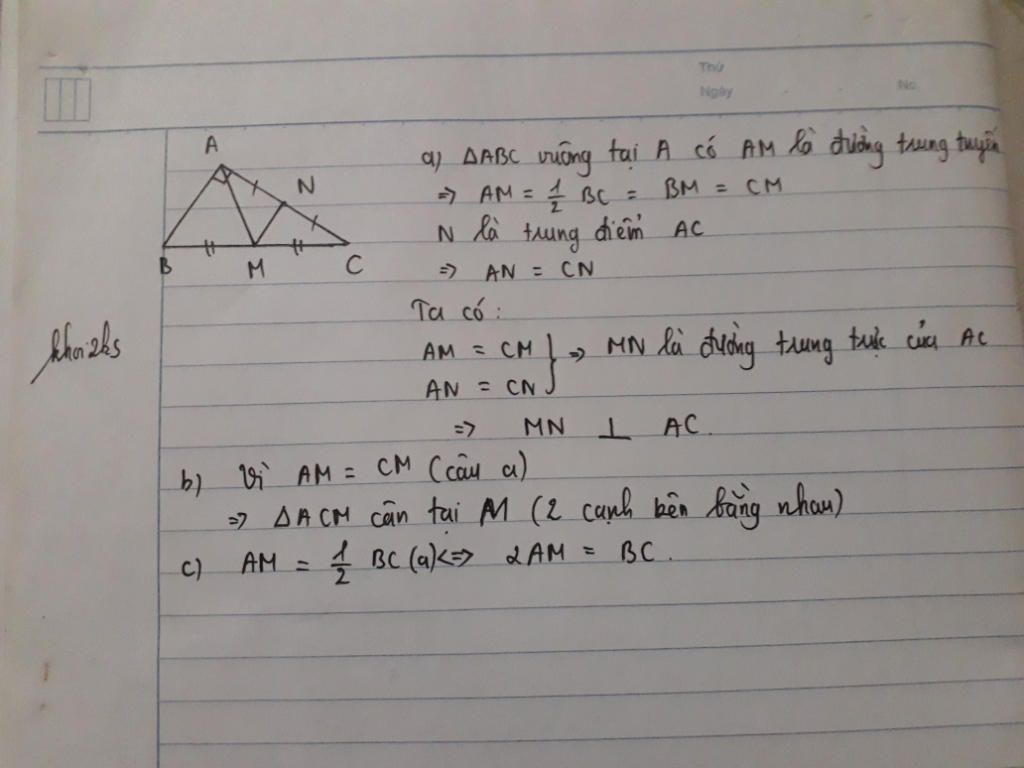 Thứ
Ngày
No.
A
N
B
M
C
a) ΔABC vuông tại A có AM là đường trung tuyến
=> AM = 1/2 BC = BM = CM
N là trung điểm AC
=> AN = CN
Ta có:
AM = CM } => MN là đường trung trực của AC
AN = CN
=> MN ⊥ AC.
khoi2k5
b) Vì AM = CM (câu a)
=> ΔACM cân tại M (2 cạnh bên bằng nhau)
c) AM = 1/2 BC (a) <=> 2AM = BC.